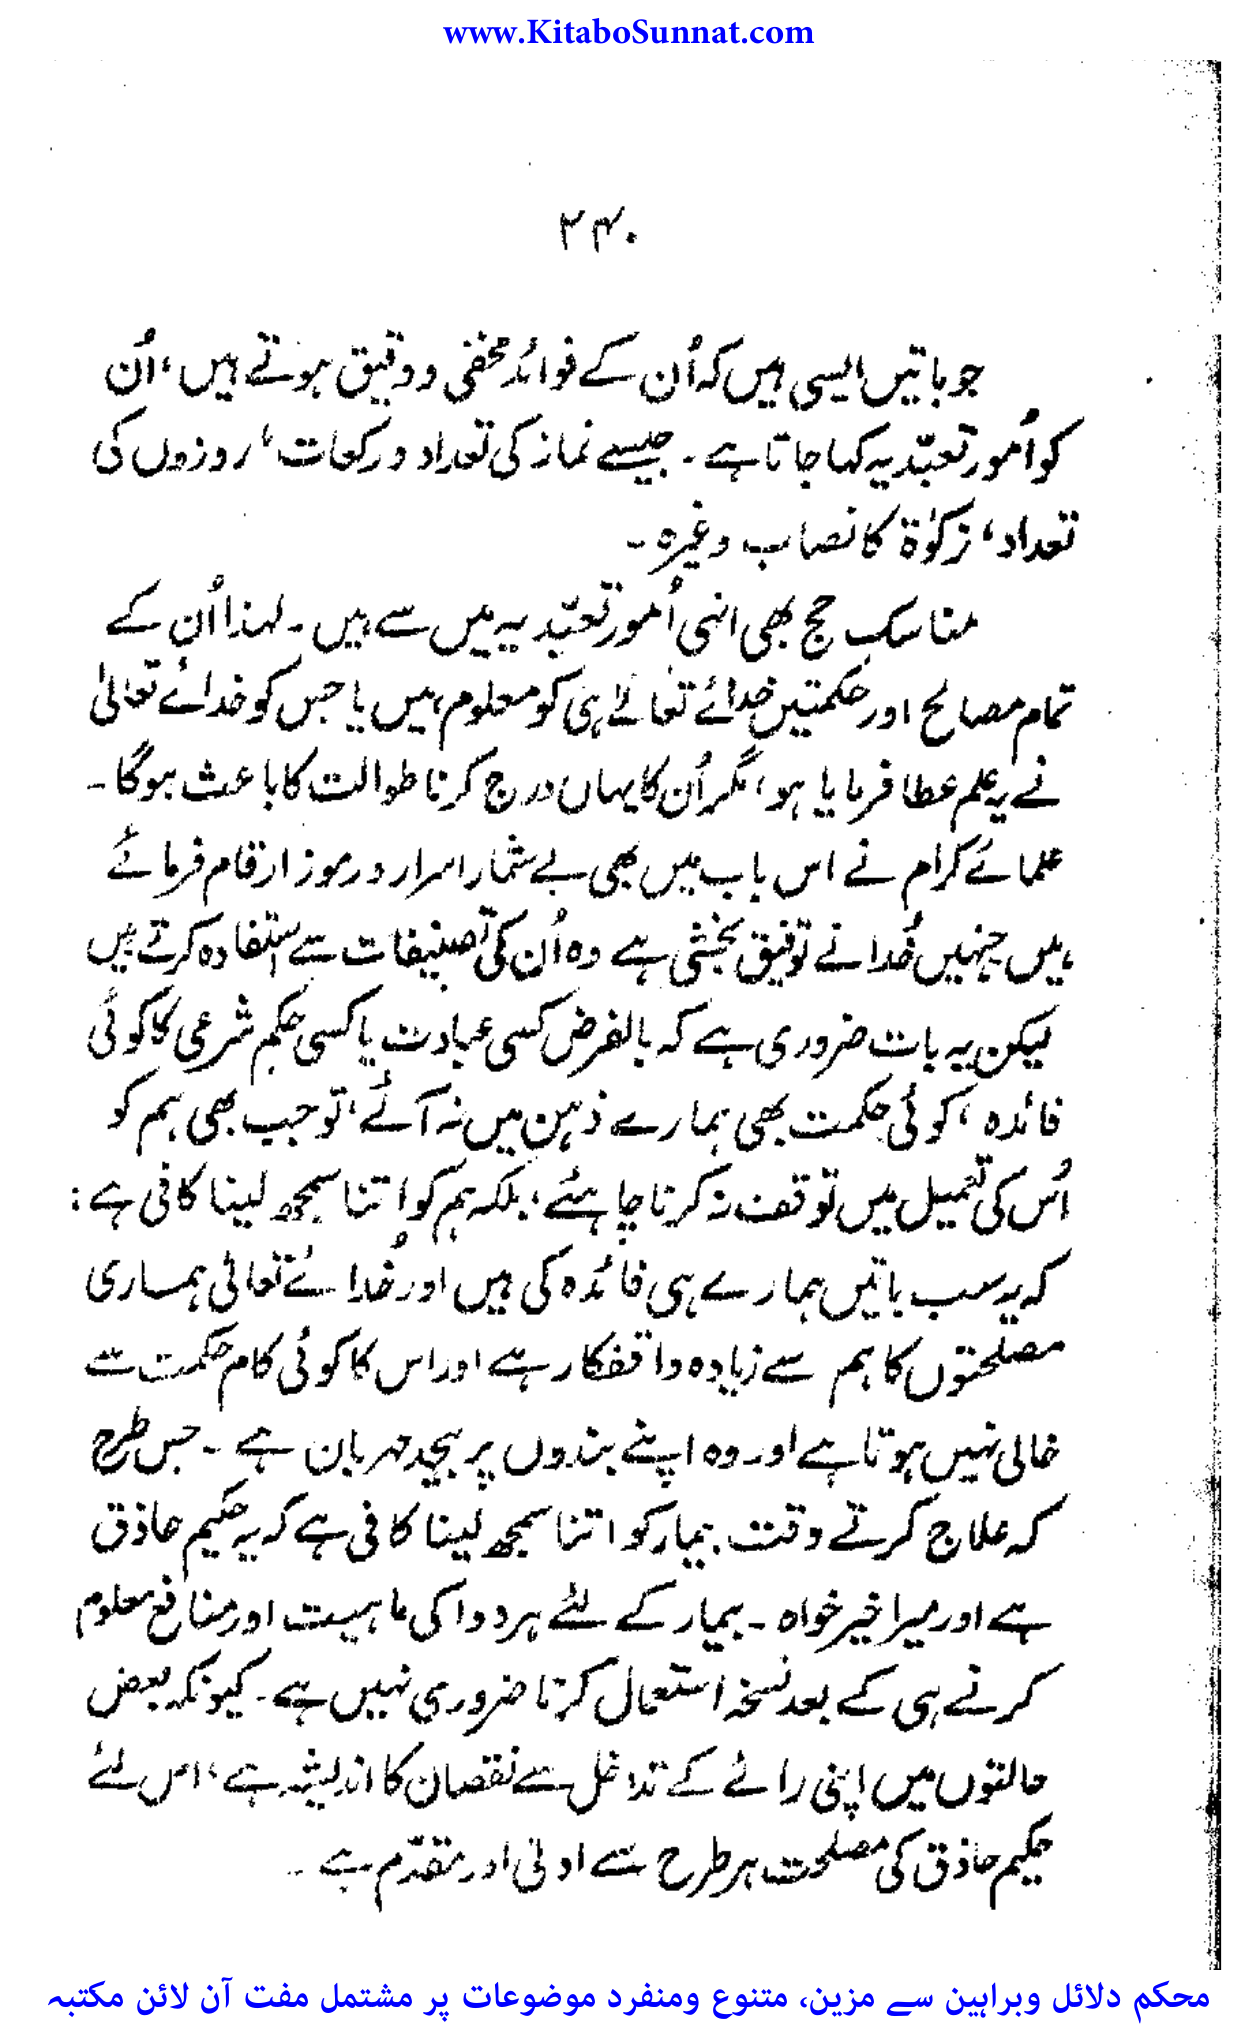 www.KitaboSunnat.com
۲۴۰
جو باتیں ایسی ہیں کہ اُن کے فوائد مخفی و دقیق ہوتے ہیں، اُن
کو اُمور تعبّدیہ کہا جاتا ہے۔ جیسے نماز کی تعداد و رکعات، روزوں کی
تعداد، زکوٰۃ کا نصاب وغیرہ۔
مناسکِ حج بھی انہی اُمور تعبّدیہ میں سے ہیں۔ لہٰذا اُن کے
تمام مصالح اور حکمتیں خدائے تعالےٰ ہی کو معلوم ہیں یا جس کو خدائے تعالیٰ
نے یہ علم عطا فرمایا ہو، مگر اُن کا یہاں درج کرنا طوالت کا باعث ہوگا۔
علمائے کرام نے اس باب میں بھی بے شمار اسرار و رموز ارقام فرمائے
ہیں جنہیں خُدا نے توفیق بخشی ہے وہ اُن کی تصنیفات سے استفادہ کرتے ہیں
لیکن یہ بات ضروری ہے کہ بالفرض کسی عبادت یا کسی حکم شرعی کا کوئی
فائدہ، کوئی حکمت بھی ہمارے ذہن میں نہ آئے، تو جب بھی ہم کو
اُس کی تعمیل میں توقف نہ کرنا چاہئے، بلکہ ہم کو اتنا سمجھ لینا کافی ہے:
کہ یہ سب باتیں ہمارے ہی فائدہ کی ہیں اور خُدائے تعالیٰ ہماری
مصلحتوں کا ہم سے زیادہ واقفکار ہے اور اس کا کوئی کام حکمت سے
خالی نہیں ہوتا ہے اور وہ اپنے بندوں پر بیحد مہربان ہے۔ جس طرح
کہ علاج کرتے وقت بیمار کو اتنا سمجھ لینا کافی ہے کہ یہ حکیم حاذق
ہے اور میرا خیر خواہ۔ بیمار کے لئے ہر دوا کی ماہیت اور منافع معلوم
کرنے ہی کے بعد نسخہ استعمال کرنا ضروری نہیں ہے۔ کیونکہ بعض
حالتوں میں اپنی رائے کے تداخل سے نقصان کا اندیشہ ہے، اس لئے
حکیم حاذق کی مصلحت ہر طرح سے اولیٰ اور مقدّم ہے۔
محکم دلائل وبراہین سے مزین، متنوع ومنفرد موضوعات پر مشتمل مفت آن لائن مکتبہ